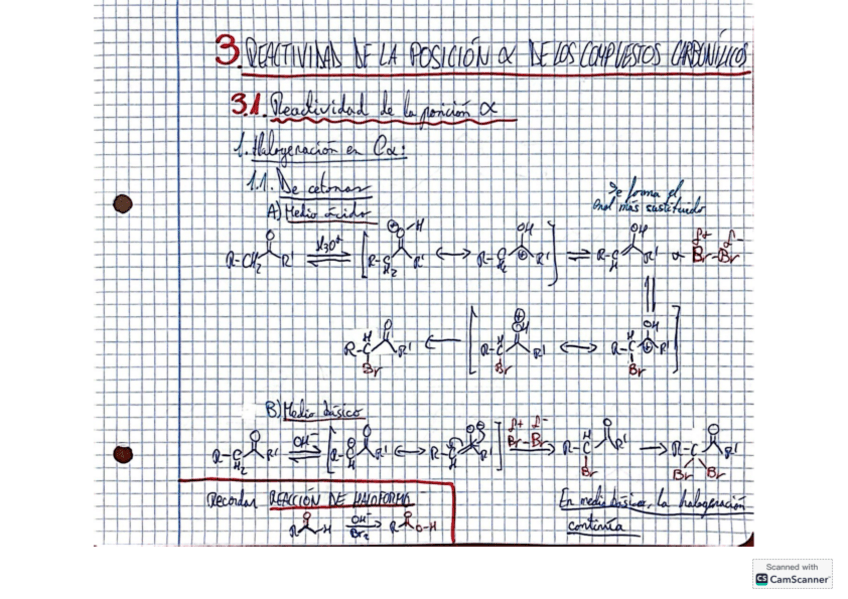 3. REACTIVIDAD DE LA POSICIÓN α DE LOS COMPUESTOS CARBONÍLICOS
3.1. Reactividad de la posición α
1. Halogenación en Cα:
1.1. De cetonas
A) Medio ácido
Se forma el
Enol más sustituido
R-CH2 O R' H3O+ R-C H2 O H R' R-C H OH R' R-C H OH R' Br-Br δ+ δ-
R-C H Br O R' R-C H Br OH R' R-C H Br OH R'
B) Medio básico
R-C H2 O R' OH- R-C H O R' R-C H O R' δ+ δ- Br-Br R-C H Br O R' R-C Br Br O R'
Recordar REACCIÓN DE HALOFORMO
R O H OH- Br2 R O O-H
En medio básico, la halogenación
continúa
Scanned with
CS CamScanner